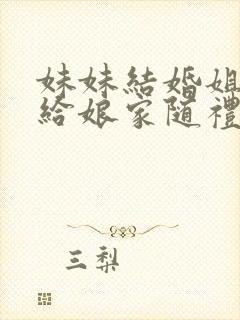 妹妹結婚姐
給娘家随禮
三梨